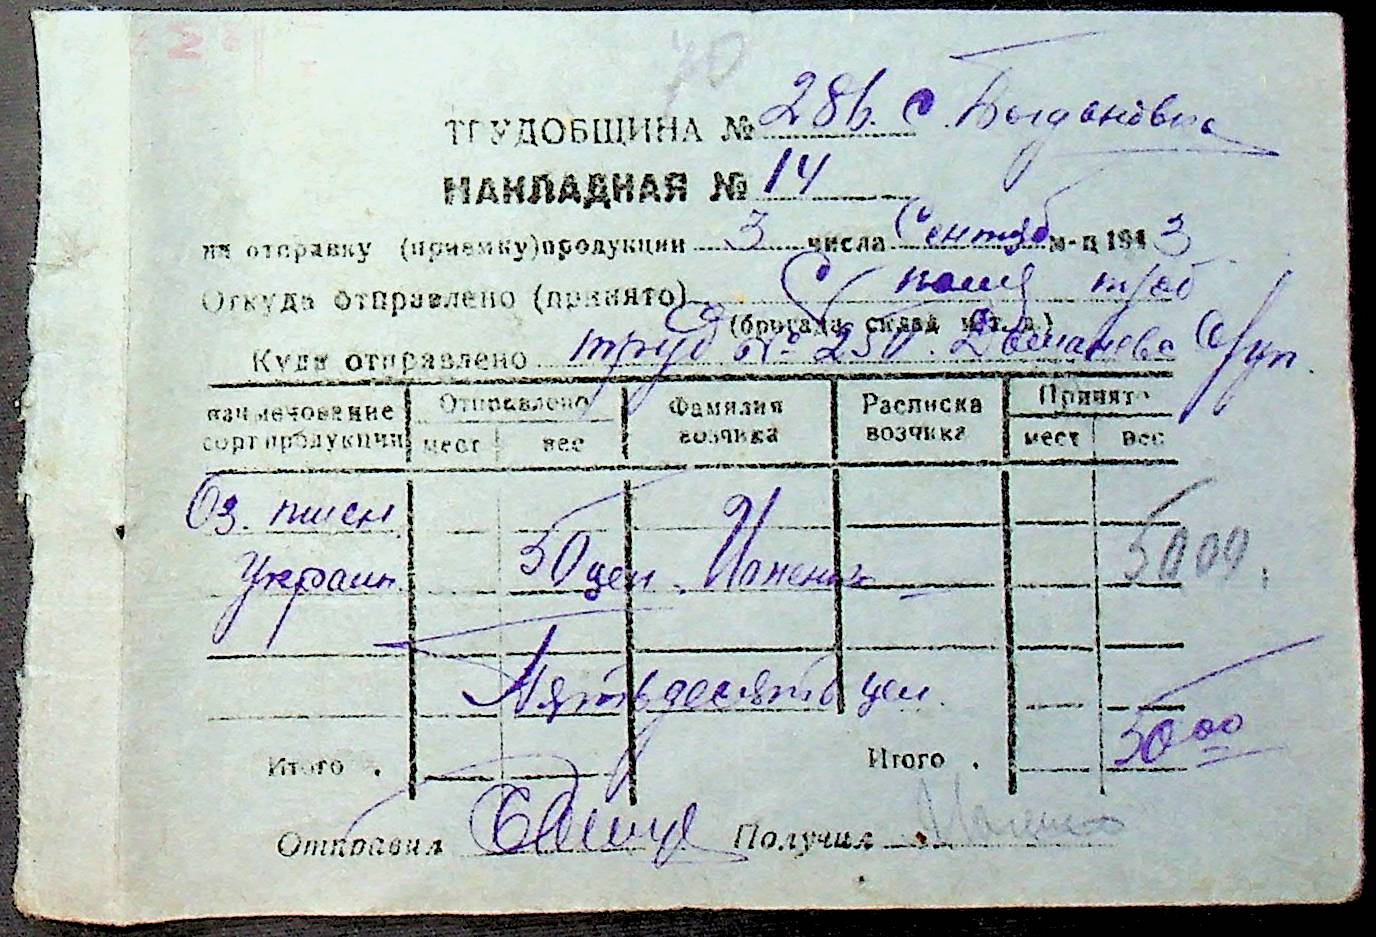 ТРУДОБЩИНА № 28б. с. Богдановка
НАКЛАДНАЯ № 14
на отправку (приемку) продукции 3 числа Сентяб м-ц 1943
Откуда отправлено (принято) С поля труб
(бригада, склад и т. д.)
Куда отправлено труб № 250.
наименование сорт продукции
Отправлено
мест вес
Фамилия возчика
Расписка возчика
Принято
мест вес
Оз. пшен
Украин. 50 цен. 5000
Пятьдесят цен.
Итого . Итого . 50 00
Отправил Получил